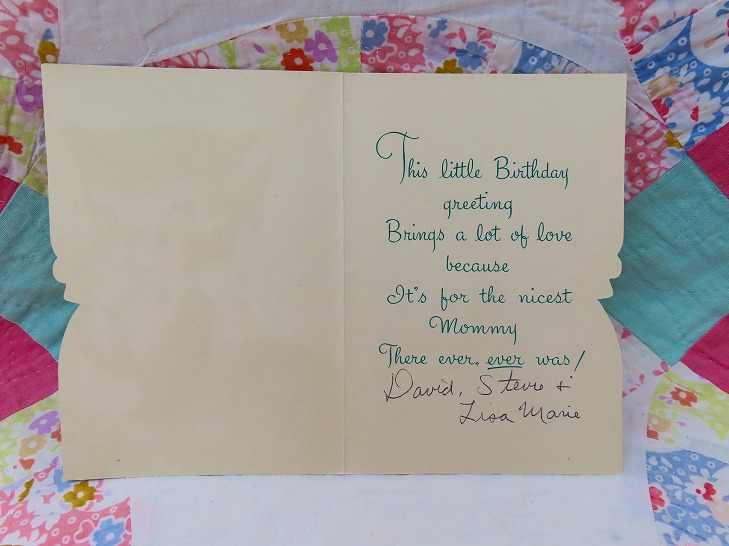 This little Birthday
greeting
Brings a lot of love
because
It's for the nicest
Mommy
There ever, ever was!
David, Stevie &
Lisa Marie